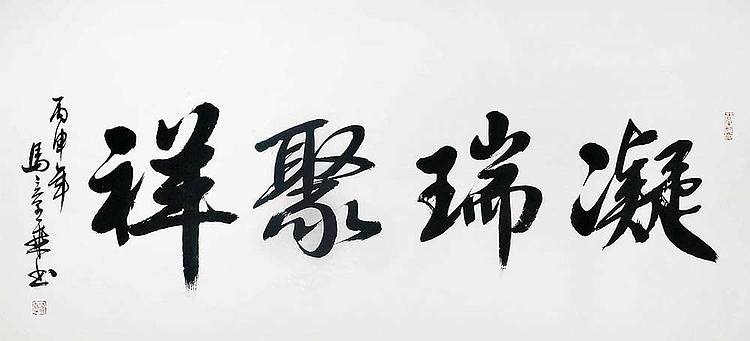 凝瑞聚祥
丙申年
馬章乘書